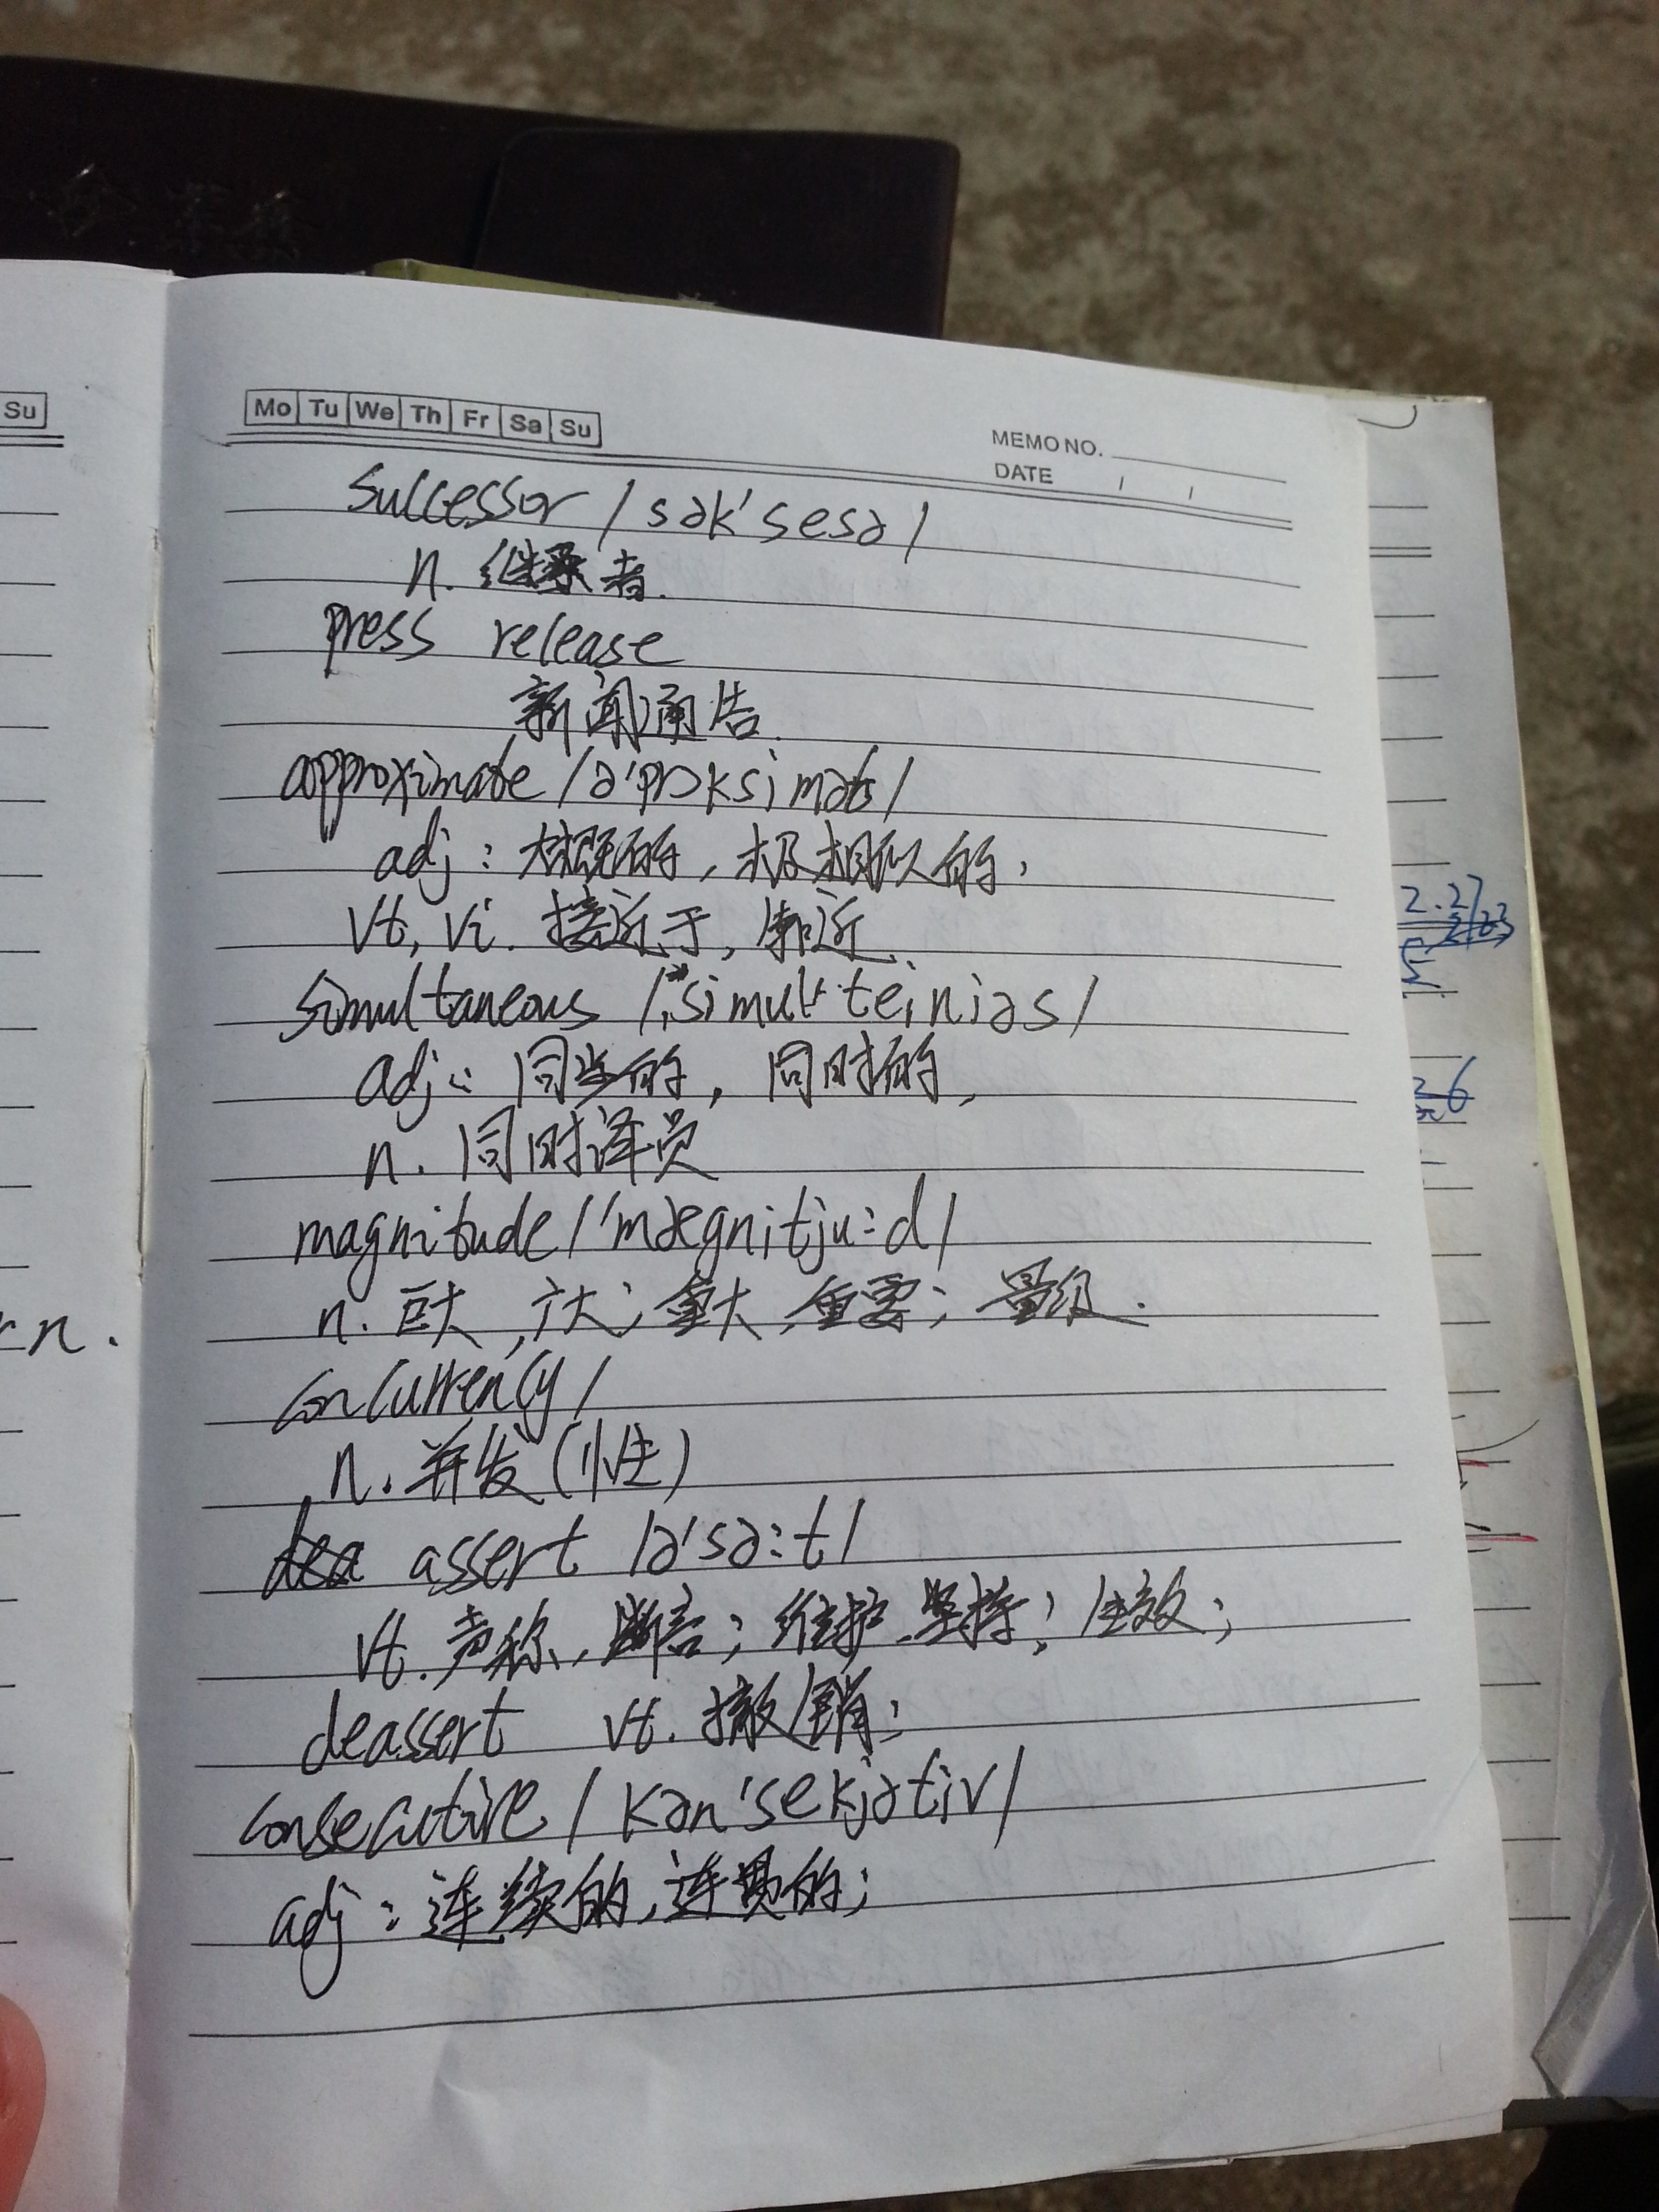 Su
Mo Tu We Th Fr Sa Su
MEMO NO.
DATE / /
successor /sək'sesə/
n. 继承者.
press release
新闻通告.
approximate /ə'prɔksimət/
adj: 大概的, 极相似的,
vt, vi. 接近于, 靠近.
simultaneous /,simul'teiniəs/
adj: 同步的, 同时的,
n. 同时译员
magnitude /'mægnitju:d/
n. 巨大, 广大; 重大, 重要; 量级.
concurrency /
n. 并发(性)
assert /ə'sə:t/
vt. 声称, 断言; 维护, 坚持; 生效;
deassert vt. 撤销;
consecutive /kən'sekjətiv/
adj: 连续的, 连贯的;
n.